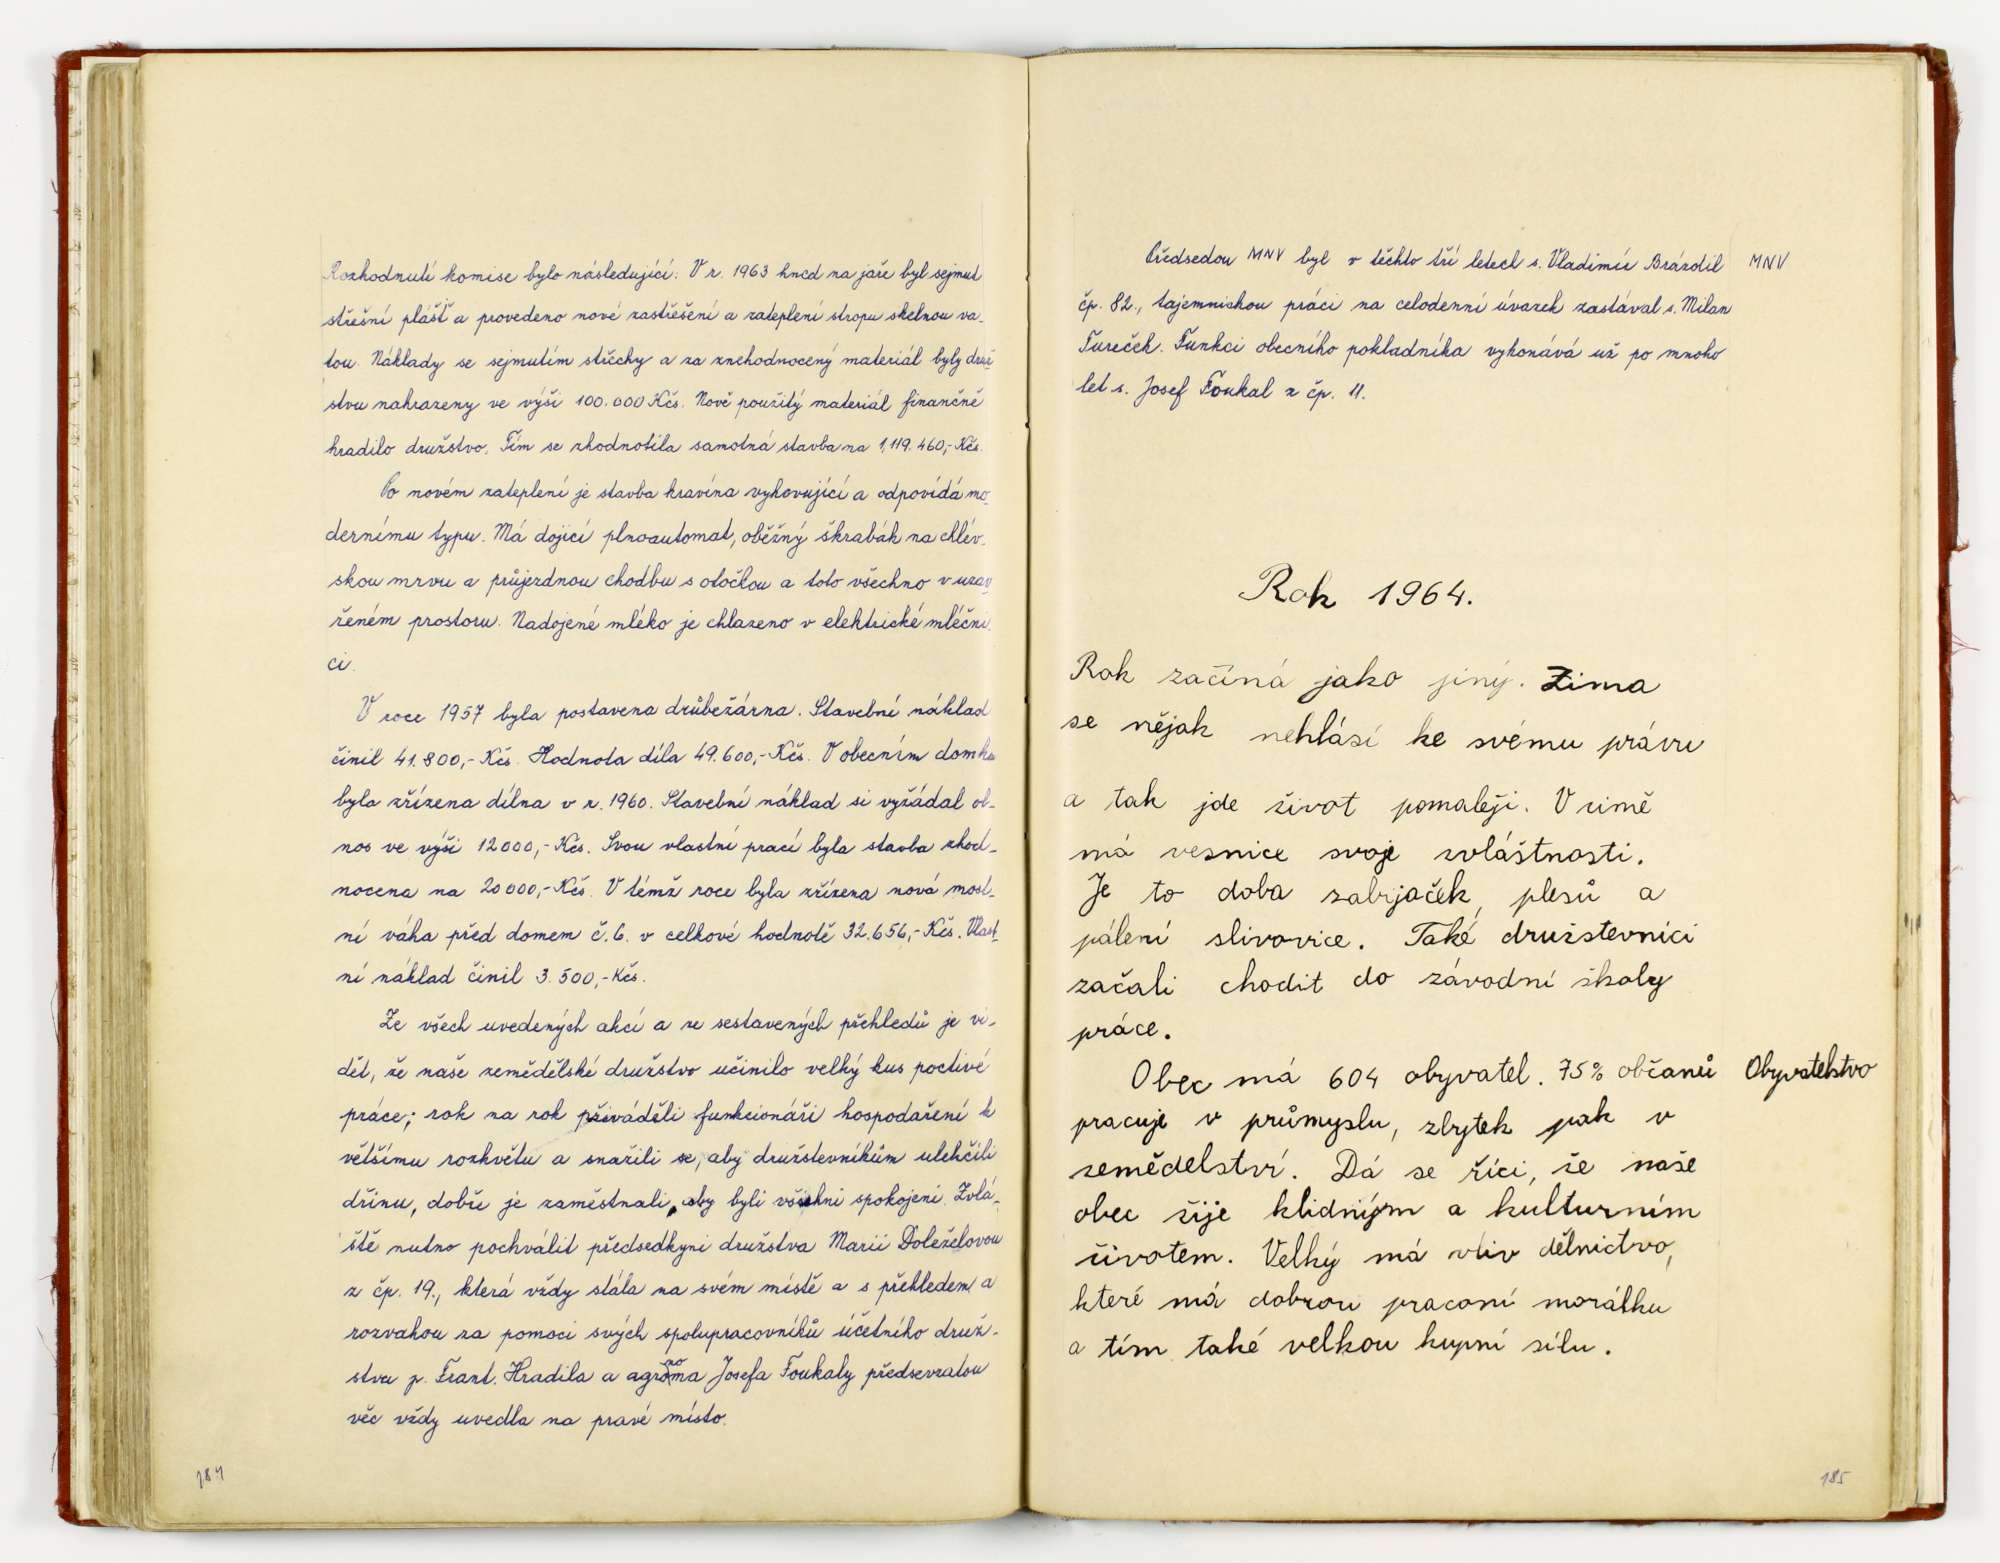 Rozhodnutí komise bylo následující: V r. 1963 hned na jaře byl sejmut
střešní plášť a provedeno nové zastřešení a zateplení stropu skelnou va-
tou. Náklady se sejmutím střechy a za znehodnocený materiál byly druž-
stvu nahrazeny ve výši 100.000 Kčs. Nově použitý materiál finančně
hradilo družstvo. Tím se zhodnotila samotná stavba na 1,119.460,- Kčs.
Po novém zateplení je stavba kravína vyhovující a odpovídá mo-
dernímu typu. Má dojící plnoautomat, oběžný škrabák na chlév-
skou mrvu a průjezdnou chodbu s otočkou a toto všechno v uzav-
řeném prostoru. Nadojené mléko je chlazeno v elektrické mléčni-
ci.
V roce 1957 byla postavena drůbežárna. Stavební náklad
činil 41.800,- Kčs. Hodnota díla 49.600,- Kčs. V obecním domku
byla zřízena dílna v r. 1960. Stavební náklad si vyžádal ob-
nos ve výši 12000,- Kčs. Svou vlastní prací byla stavba zhod-
nocena na 20000,- Kčs. V témž roce byla zřízena nová most-
ní váha před domem č. 6. v celkové hodnotě 32.656,- Kčs. Vlast-
ní náklad činil 3.500,- Kčs.
Ze všech uvedených akcí a ze sestavených přehledů je vi-
dět, že naše zemědělské družstvo učinilo velký kus poctivé
práce; rok na rok přiváděli funkcionáři hospodaření k
většímu rozkvětu a snažili se, aby družstevníkům ulehčili
dřinu, dobře je zaměstnali, aby byli všichni spokojeni. Zvlá-
ště nutno pochválit předsedkyni družstva Marii Doleželovou
z čp. 19., která vždy stála na svém místě a s přehledem a
rozvahou za pomoci svých spolupracovníků účetního druž-
stva p. Frant. Hradila a agronoma Josefa Foukaly předsevzatou
věc vždy uvedla na pravé místo.
184
Předsedou MNV byl v těchto tří letech s. Vladimír Brázdil MNV
čp. 82., tajemnickou práci na celodenní úvazek zastával s. Milan
Tureček. Funkci obecního pokladníka vykonává už po mnoho
let s. Josef Foukal z čp. 11.
Rok 1964.
Rok začíná jako jiný. Zima
se nějak nehlásí ke svému právu
a tak jde život pomaleji. V zimě
má vesnice svoje zvláštnosti.
Je to doba zabijaček, plesů a
pálení slivovice. Také družstevníci
začali chodit do závodní školy
práce.
Obec má 604 obyvatel. 75% občanů Obyvatelstvo
pracuje v průmyslu, zbytek pak v
zemědelství. Dá se říci, že naše
obec žije klidným a kulturním
životem. Velký má vliv dělnictvo,
které má dobrou pracovní morálku
a tím také velkou kupní sílu.
185